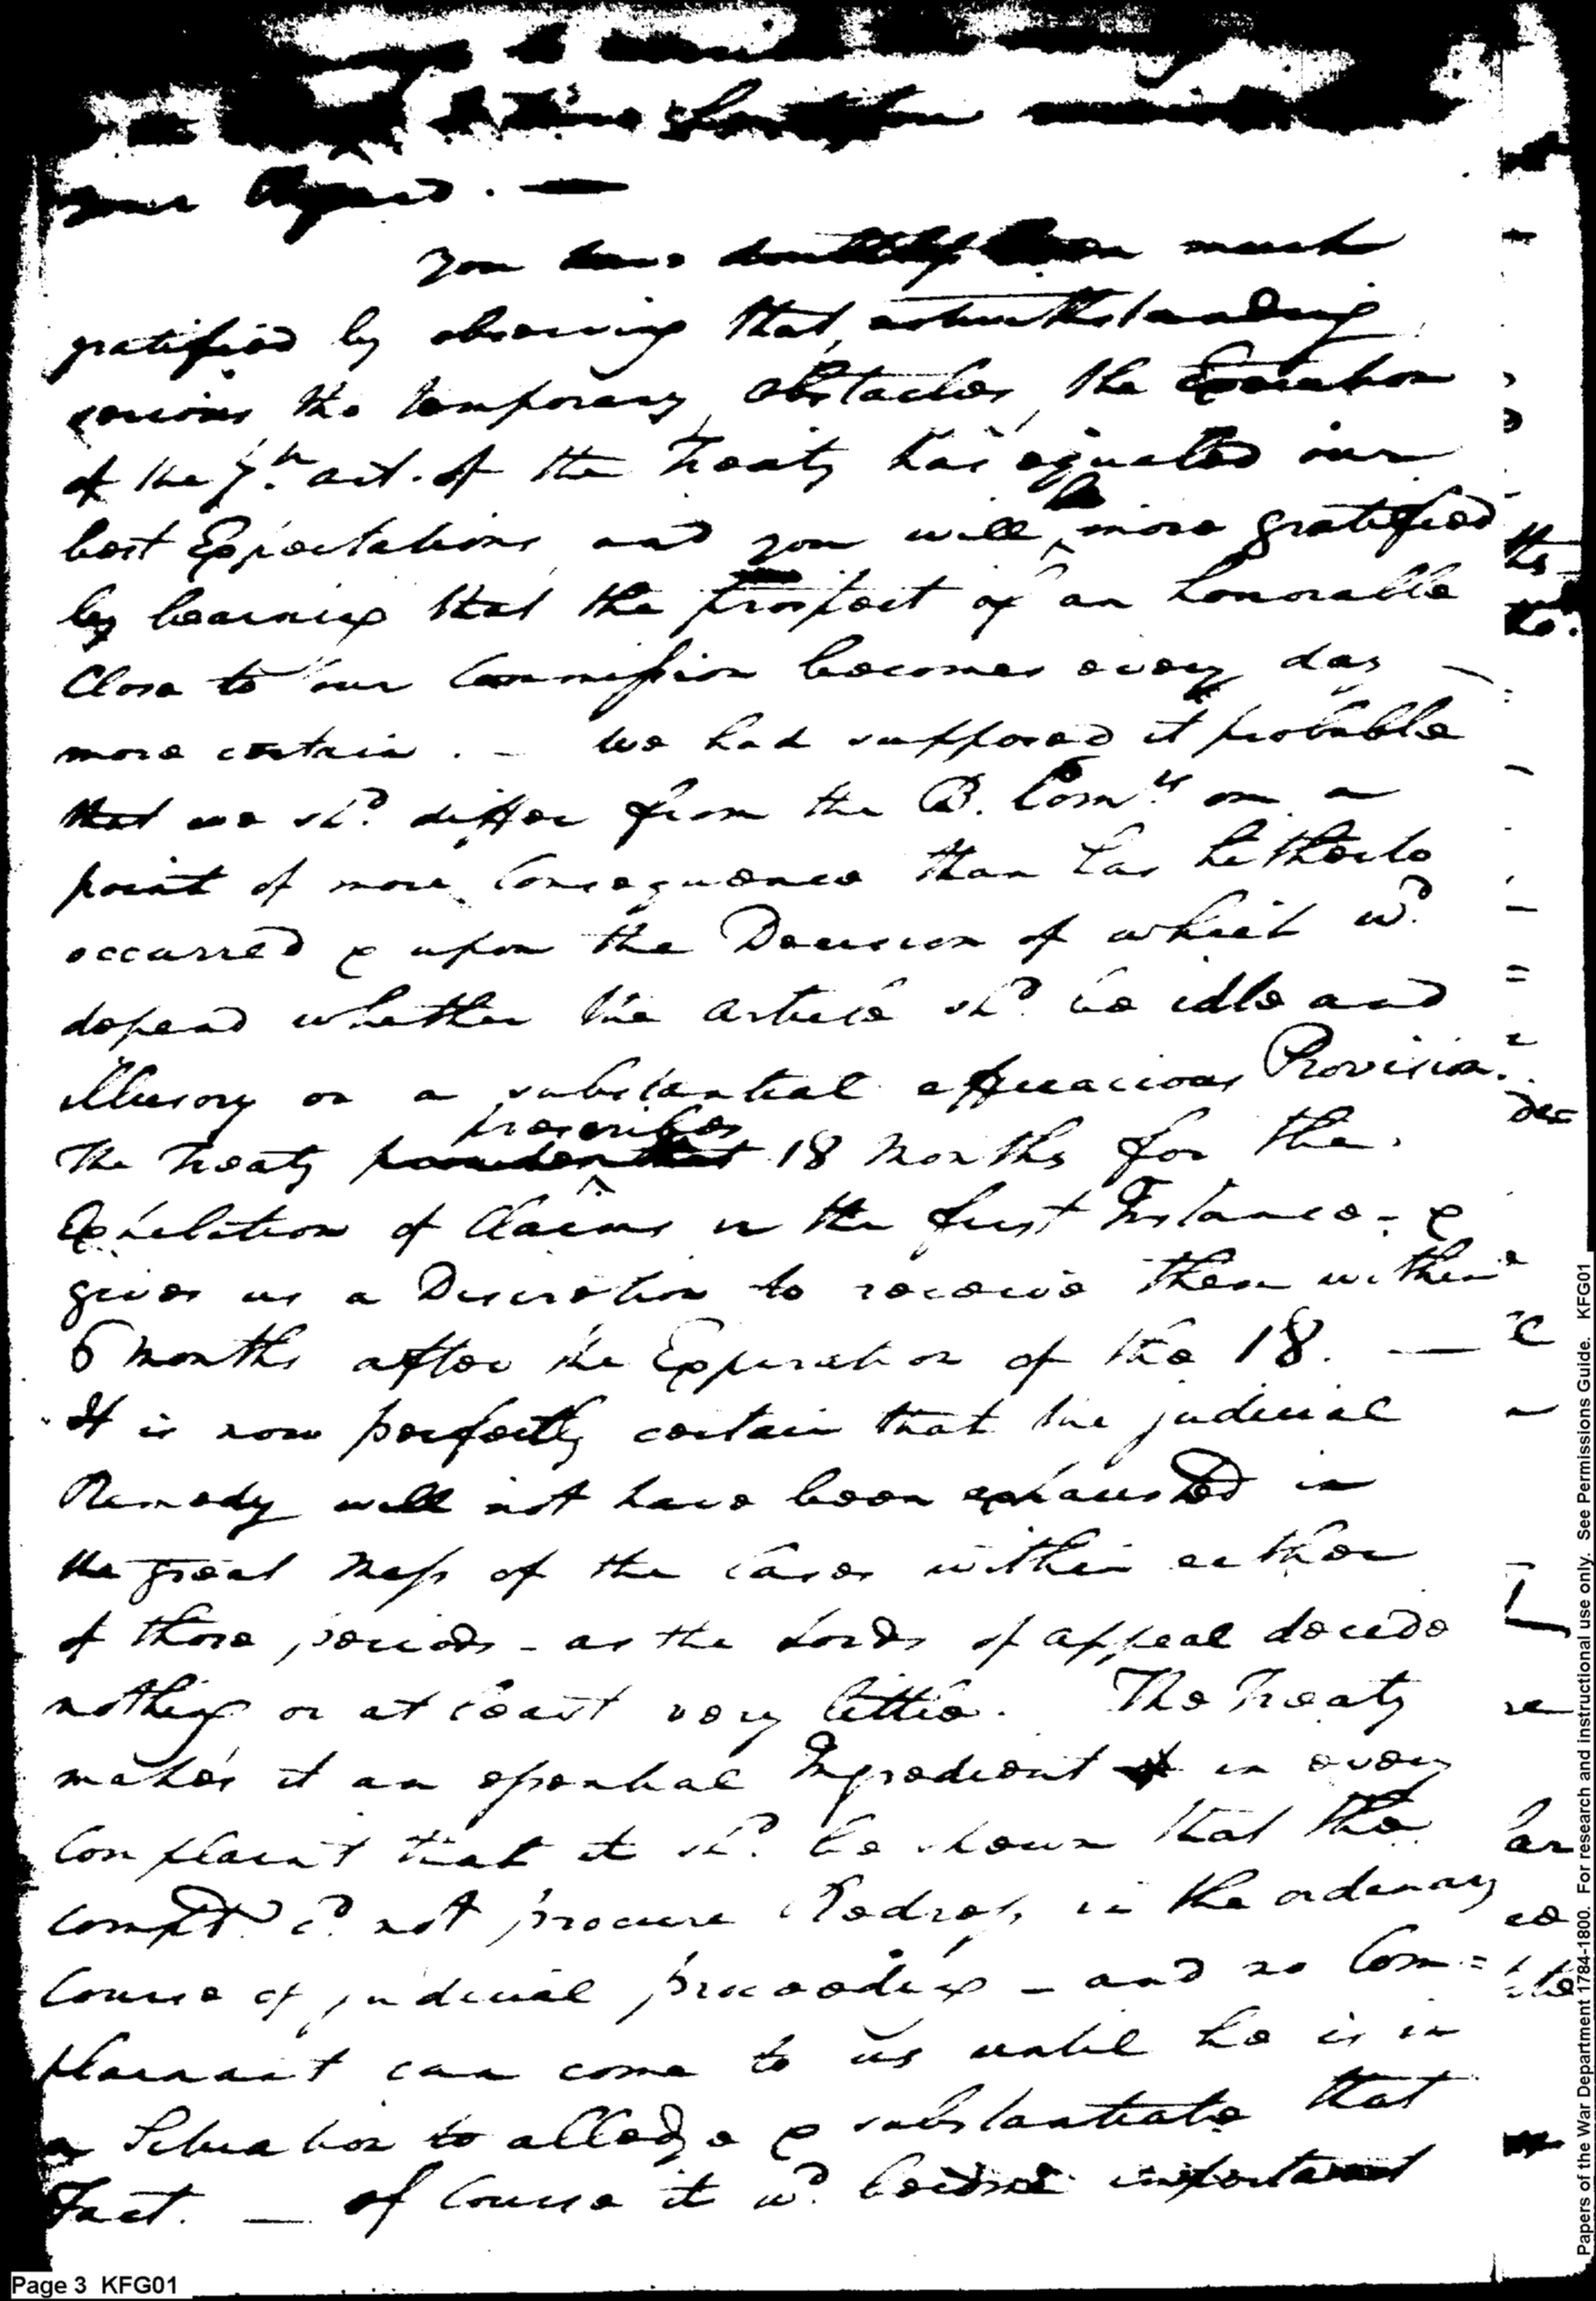 your regard. —
you have doubtless been much
gratified by observing that, notwithstanding
serious tho temporary obstacles, the Execution
of the 7th. art. of the Treaty has equalled our
best Expectations and you will be more gratified
by learning that the prospect of an honorable
Close to our Commission becomes every day
more certain. — We had supposed it probable
that we shd. differ from the B. Comrs. on a
point of more Consequence than has hitherto
occurred & upon the Decision of which wd.
depend whether the article shd. be idle and
illusory or a substantial efficacious Provision.
prescribes
The Treaty 18 Months for the
Exhibition of Claims in the first Instance - &
gives us a Discretion to receive them within
6 Months after the Expiration of the 18. —
It is now perfectly certain that the judicial
Remedy will not have been exhausted in
the great Mass of the Cases within either
of those periods - as the Lords of appeal decide
nothing or at least very little. The Treaty
makes it an essential Ingredient in every
Complaint that it shd. be shown that the
Complt. cd. not procure Redress in the ordinary
Course of judicial proceeding - and no Com=
plainant can come to us until he is in
a Situation to alledge & substantiate that
Fact. — of Course it wd. become important
Page 3 KFG01
Papers of the War Department 1784-1800. For research and instructional use only. See Permissions Guide. KFG01